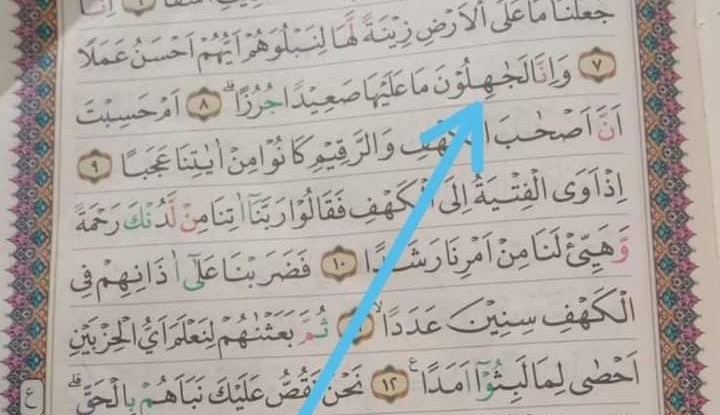 اِنَّا
جَعَلْنَا مَا عَلَى الْاَرْضِ زِيْنَةً لَّهَا لِنَبْلُوَهُمْ اَيُّهُمْ اَحْسَنُ عَمَلًا
٧ وَاِنَّا لَجٰهِلُوْنَ مَا عَلَيْهَا صَعِيْدًا جُرُزًاۗ ٨ اَمْ حَسِبْتَ
اَنَّ اَصْحٰبَ الْكَهْفِ وَالرَّقِيْمِ كَانُوْا مِنْ اٰيٰتِنَا عَجَبًا ٩
اِذْ اَوَى الْفِتْيَةُ اِلَى الْكَهْفِ فَقَالُوْا رَبَّنَآ اٰتِنَا مِنْ لَّدُنْكَ رَحْمَةً
وَّهَيِّئْ لَنَا مِنْ اَمْرِنَا رَشَدًا ١٠ فَضَرَبْنَا عَلٰٓى اٰذَانِهِمْ فِى
الْكَهْفِ سِنِيْنَ عَدَدًاۙ ثُمَّ بَعَثْنٰهُمْ لِنَعْلَمَ اَيُّ الْحِزْبَيْنِ
اَحْصٰى لِمَا لَبِثُوْٓا اَمَدًاࣖ ١٢ نَحْنُ نَقُصُّ عَلَيْكَ نَبَاَهُمْ بِالْحَقِّۗ
ع